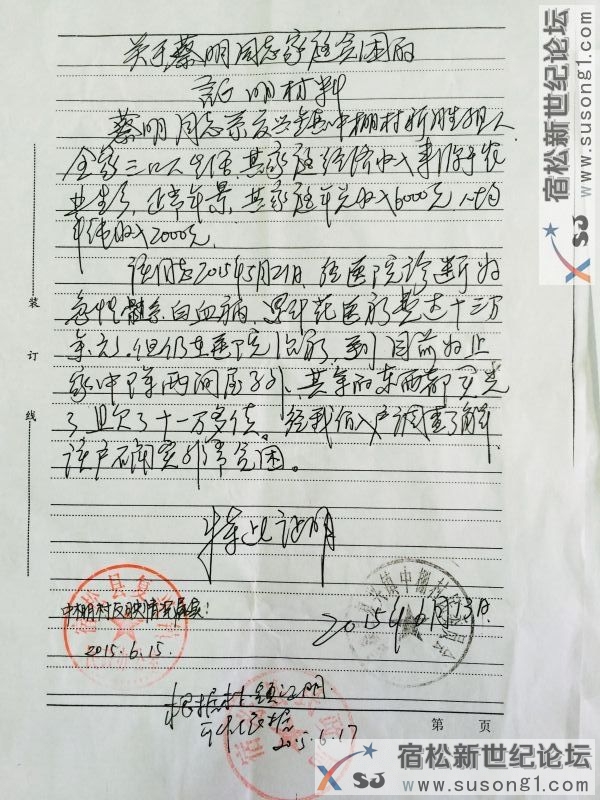 宿松新世纪论坛
XSJ
www.susong1.com
关于蔡明同志家庭贫困的
証明材料
蔡明同志系复兴镇中棚村新胜组人
全家三口人生活,其家庭经济收入事得于农
业生产,正常年景,其家庭年总收入6000元,人均
年纯收入2000元。
该同志2015年5月21日,经医院诊断为
急性髓系白血病,累计花医疗费达十三万
余元,但仍在医院治疗,到目前为止
家中除两间房子外,其余的东西都卖光
了,且欠了十一万多债。经我们入户调查了解
该户确实非常贫困。
特此证明
2015年6月13日
装
订
线
宿松县复兴
镇中棚村
中棚村反映情况属实!
2015.6.15.
根据村、镇证明
2015.6.17
第 页
宿松新世纪论坛
XSJ
www.susong1.com